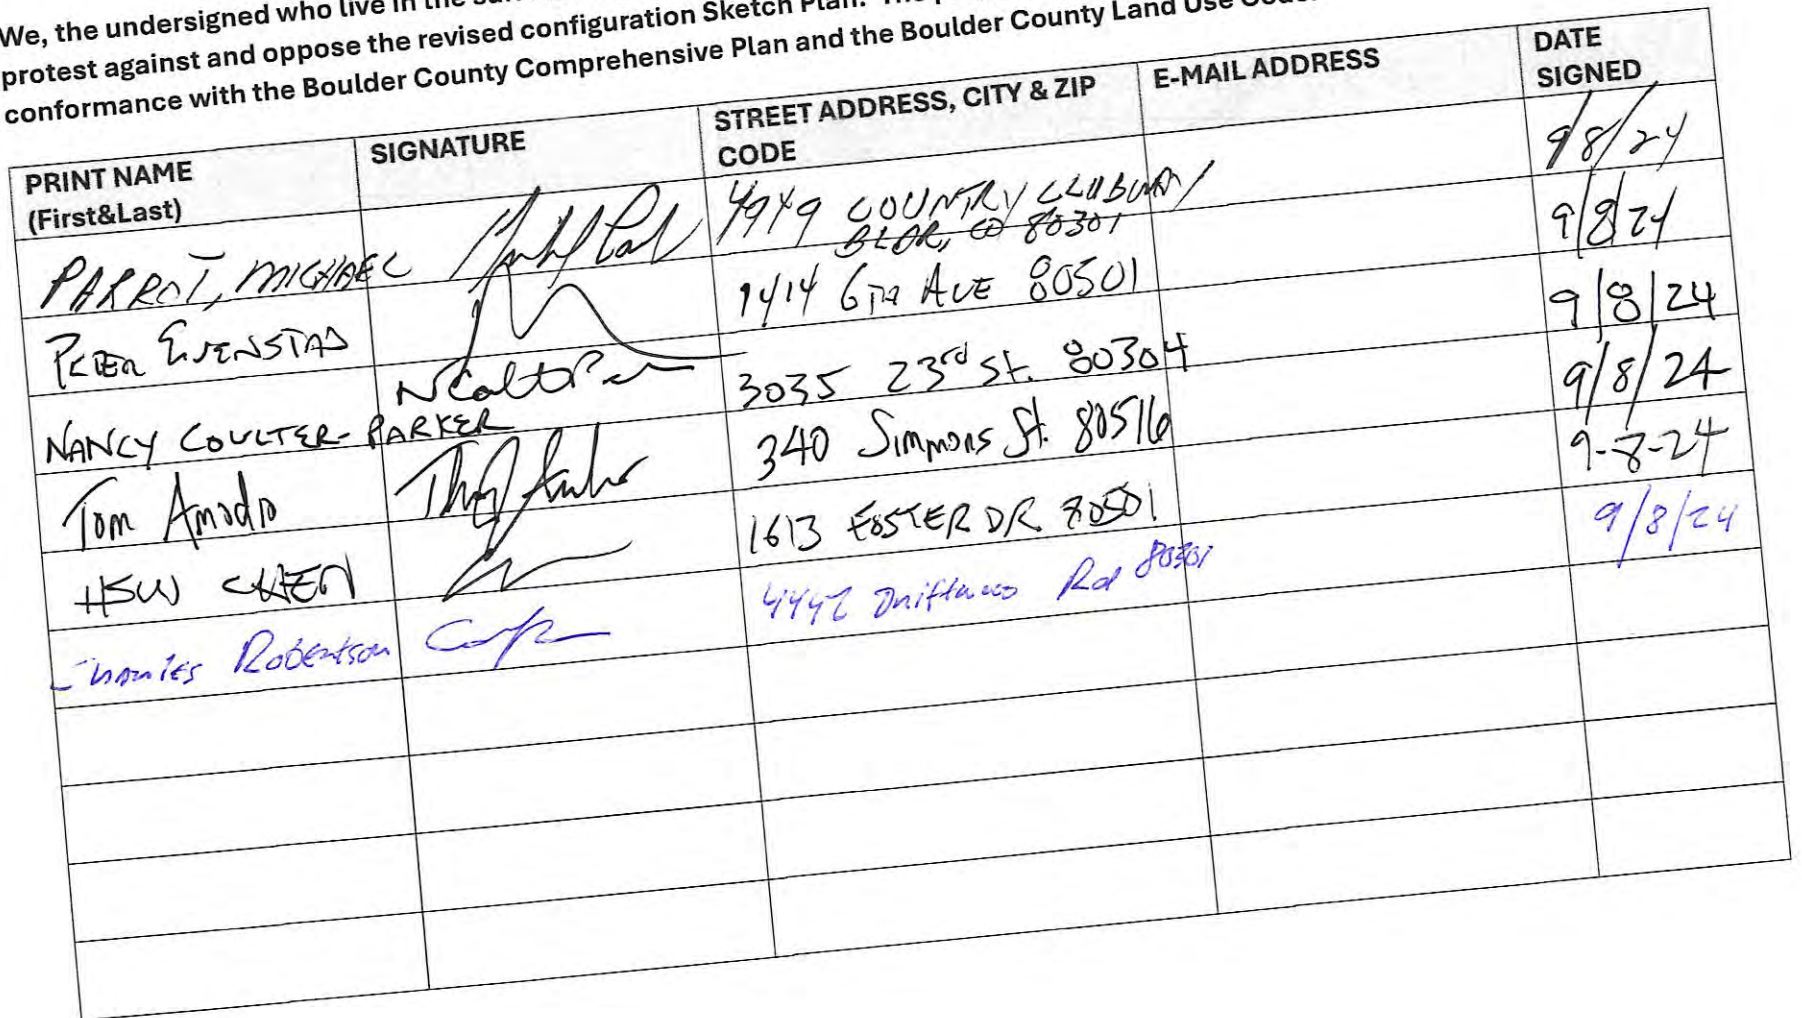 We, the undersigned who live in the
protest against and oppose the revised configuration Sketch Plan.
conformance with the Boulder County Comprehensive Plan and the Boulder County Land Use
PRINT NAME (First&Last) SIGNATURE STREET ADDRESS, CITY & ZIP CODE E-MAIL ADDRESS DATE SIGNED
PARROT, MICHAEL 4949 COUNTRY CLUB WAY 9/8/24
BLDR, CO 80301
PETER EVENSTAD 1414 6TH AVE 80501 9/8/24
NANCY COULTER-PARKER 3035 23rd St. 80304 9/8/24
Tom Amodio 340 Simmons St. 80516 9/8/24
HSW CHEN 1613 FOSTER DR 80501 9-8-24
Charles Robertson 4442 Driftwood Rd 80301 9/8/24